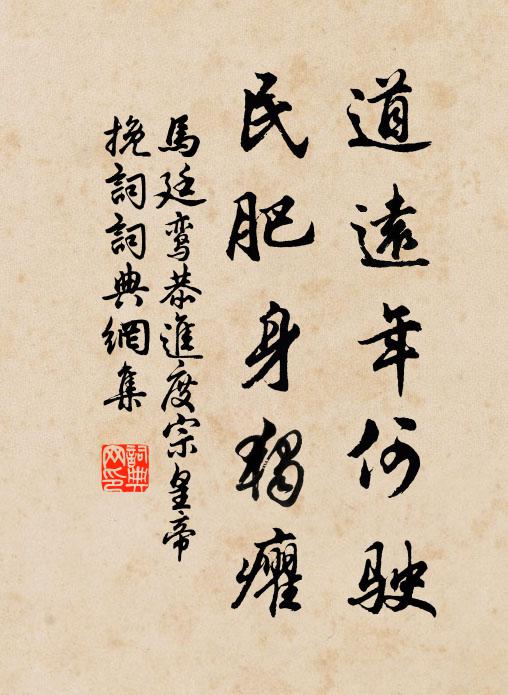 道遠年何駛
民肥身獨癯
馬廷鸞恭進度宗皇帝
挽詞詞典網集
詞典
网印